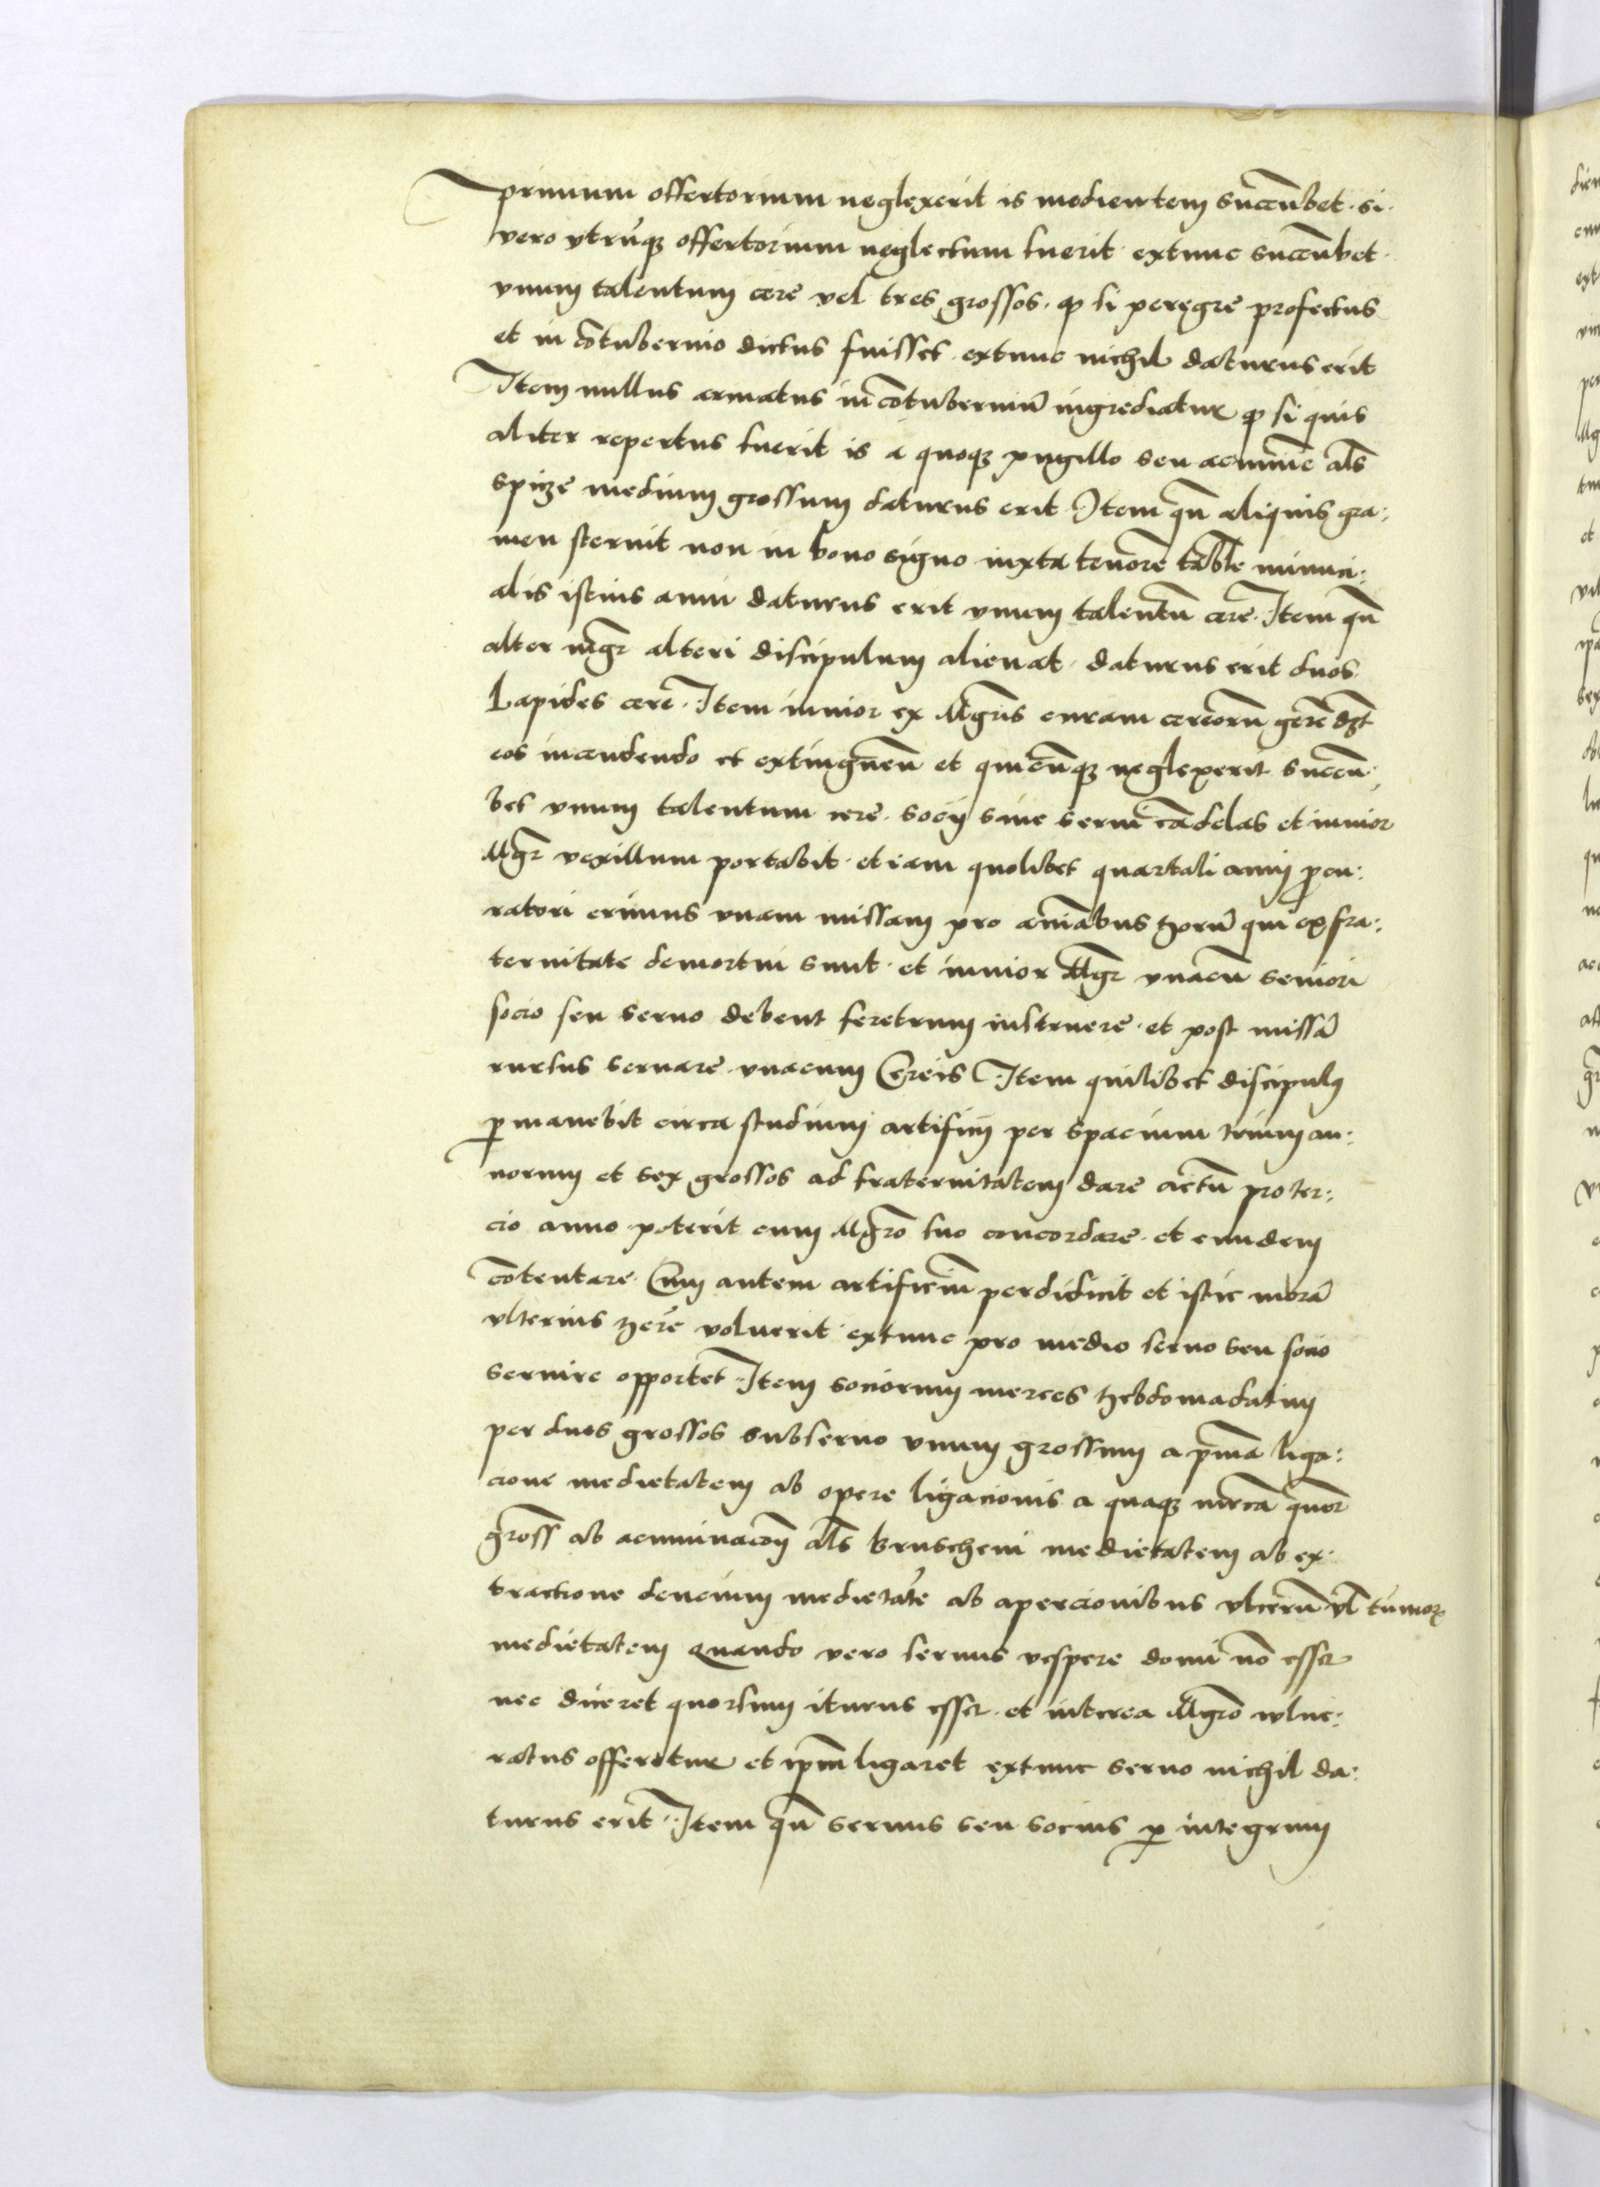 primum offertorium neglexerit is medietatem succūbet · si ·
vero vtrūqꝫ offertorium neglectum fuerit · extunc succūbet ·
vnum talentum cere vel tres grossos · ꝙ si peregre profectus
et in cōtubernio dictus fuisset · extunc nichil daturus erit
Item nullus armatus in cōtuberniū ingrediatur ꝙ si quis
aliter repertus fuerit is a quoqꝫ pugillo seu acumine als̄
spicze medium grossum daturus erit · Item qn̄ aliquis gra:
men sternit non in bono signo iuxta tenorē tab̄le minuci:
alis istius anni daturus erit vnum talentū cere · Item qn̄
alter mgr̄ alteri discipulum alienat · daturus erit duos
Lapides cere · Item iunior ex Mgr̄is curam cereorū gerē dꝫt
eos incendendo et extinguēn et quicūqꝫ neglexerit succū:
bet vnum talentum cere · socij siue serui cādelas et iunior
Mgr̄ vexillum portabit · etiam quolibet quartali anni ꝓcu:
ratori erimus vnam missam pro aīabus horū qui ex fra:
ternitate demortui sunt · et iunior Mgr̄ vnacū seniori
socio seu seruo debent feretrum instruere · et post missā
rursus seruare · vnacum Cereis Item quilibet discipulꝰ
ꝑmanebit circa studium artificij per spacium trium an:
norum et sex grossos ad fraternitatem dare · attn̄ pro ter:
cio anno poterit cum Mgrō suo concordare · et eundem
cōtentare · Cum autem artificiūm perdidicit et istic morā
vlterius hēre voluerit · extunc pro medio seruo seu socio
seruire opportet · Item sociorum merces hebdomadatim
per duos grossos subseruo vnum grossum a pīma liga:
cione medietatem ab opere ligacionis a quaqꝫ mrca quor̄
gross̄ ab acuminacōn als̄ bruscheni medietatem ab ex:
tractione dencium medietatē ab apercionibus vlcerū vl̄ tumorꝝ
medietatem Quando vero seruus vespere domi nō esset
nec diceret quorsum iturus esset · et interea Mgrō wlne:
ratus offeretur et ip̄m ligaret extunc seruo nichil da:
turus erit · Item qn̄ seruus seu socius ꝑ integrum